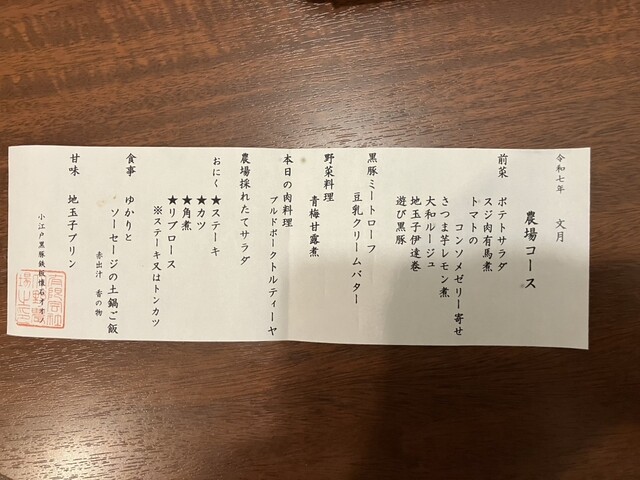 令和七年　文月
農場コース
前菜　ポテトサラダ
スジ肉有馬煮
トマトの
コンソメゼリー寄せ
さつま芋レモン煮
大和ルージュ
地玉子伊達巻
遊び黒豚
黒豚ミートローフ
豆乳クリームバター
野菜料理
青梅甘露煮
本日の肉料理
プルドポークトルティーヤ
農場採れたてサラダ
おにく　★ステーキ
★カツ
★角煮
★リブロース
※ステーキ又はトンカツ
食事　ゆかりと
ソーセージの土鍋ご飯
赤出汁　香の物
甘味　地玉子プリン
小江戸黒豚鉄板懐石オオノ